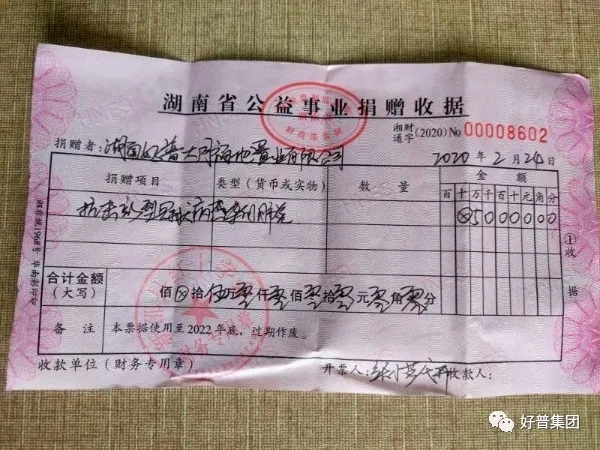 湖南省公益事业捐赠收据
湘财通字 (2020) No 00008602
捐赠者：湖南好普大同福地置业有限公司 2020年2月24日
捐赠项目 类型（货币或实物） 数量 金额
百十万千百十元角分
抗击新型冠状病毒 ⊗5000000
合计金额（大写） 佰⊗拾伍万零仟零佰零拾零元零角零分
备注 本票据使用至2022年底，过期作废。
①收据
收款单位（财务专用章） 开票人： 收款人：
财政部监制
财务专用章
好普集团